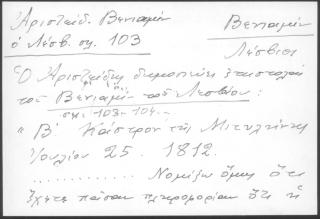 Ἀριστείδ. Βενιαμίν
Βενιαμίν
ὁ Λέσβ. σι. 103
Λέσβιος
Ὁ Ἀριστείδης δημοσιεύει ἐπιστολὰς
τοῦ Βενιαμὶν τοῦ Λεσβίου:
σι. 103-104.
"Β' Κάστρον τῆς Μιτυλήνης
Ἰουλίου 25. 1812.
............ Νομίζω ὅμως ὅτι
ἔχετε πᾶσαν πληροφορίαν ὅτι ἡ